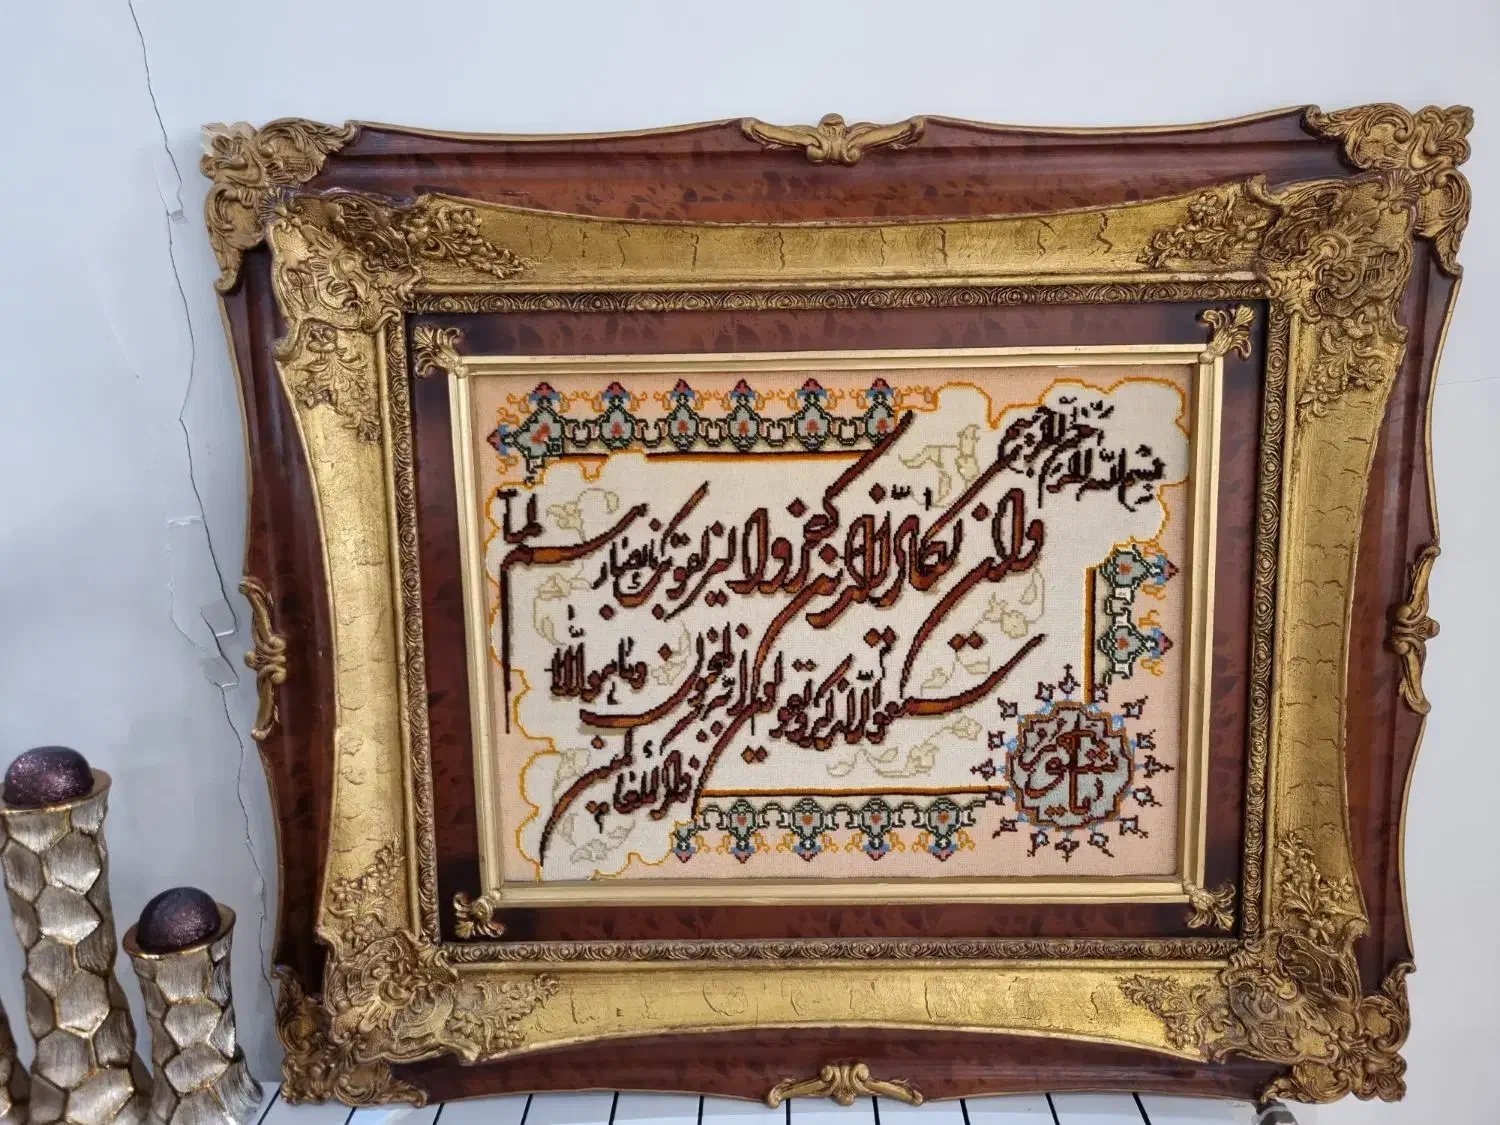 بسم الله الرحمن الرحیم
وان یکاد الذین کفروا لیزلقونک بابصارهم لما
سمعوا الذکر ویقولون انه لمجنون وما هو الا
ذکر للعالمین